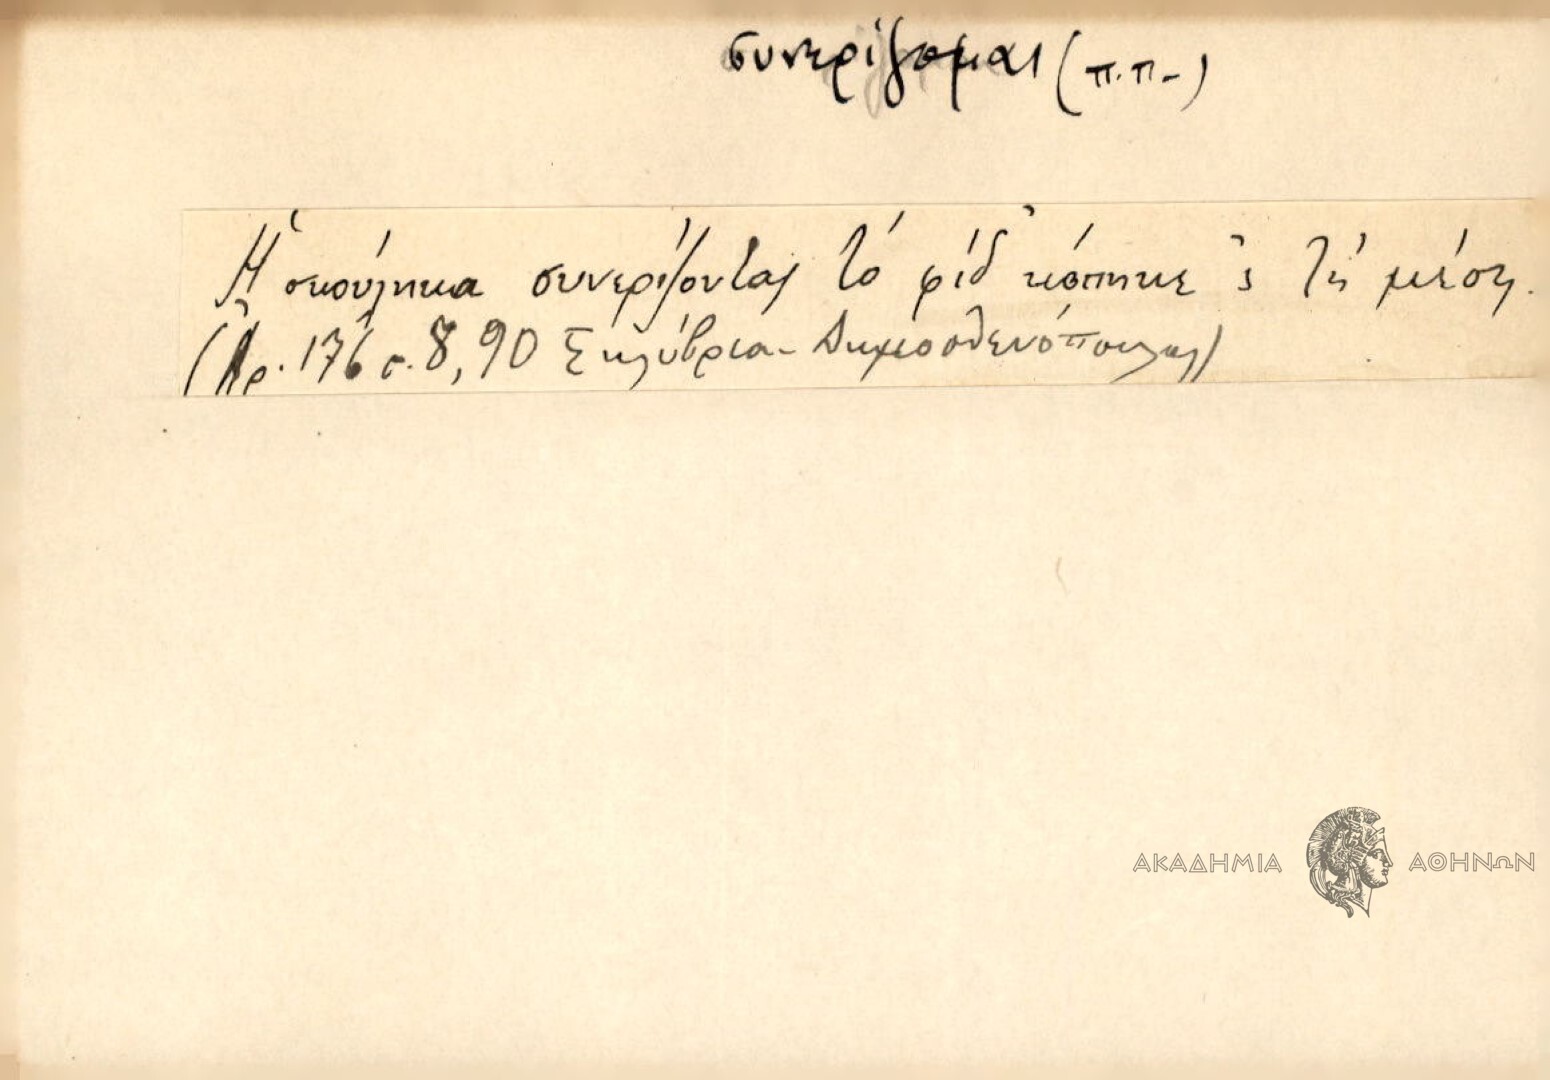 συνερίζομαι (π.π-)
Ἡ σκούληκα συνερίζονται τό φίδ' κόπηκε 'ς τή μέση.
(Ἀρ. 176 σ. 8,90 Σηλύβρια - Δημοσθενόπουλος)
ΑΚΑΔΗΜΙΑ ΑΘΗΝΩΝ